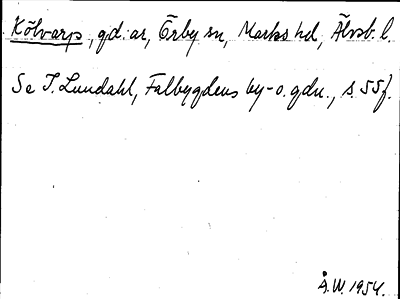 Kölvarp, gd. ar, Örby sn, Marks hd, Älvsb. l.
Se I. Lundahl, Falbygdens by- o. gdn., s. 55 f.
Å.W. 1954.